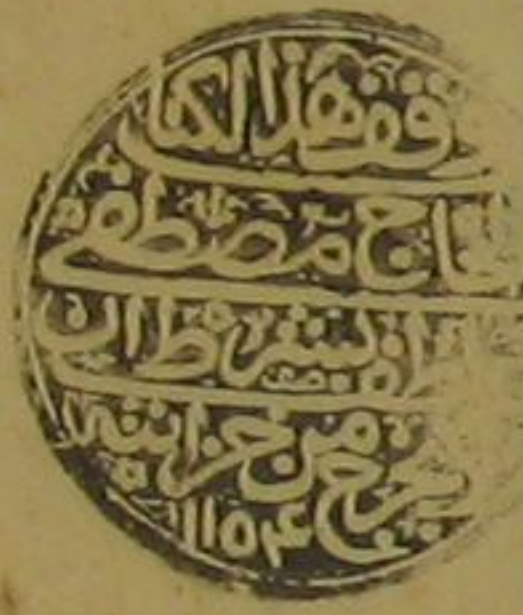 وقف هذا الكتاب
الحاج مصطفى
بشرط ان
يخرج من خزانته
١١٥٤